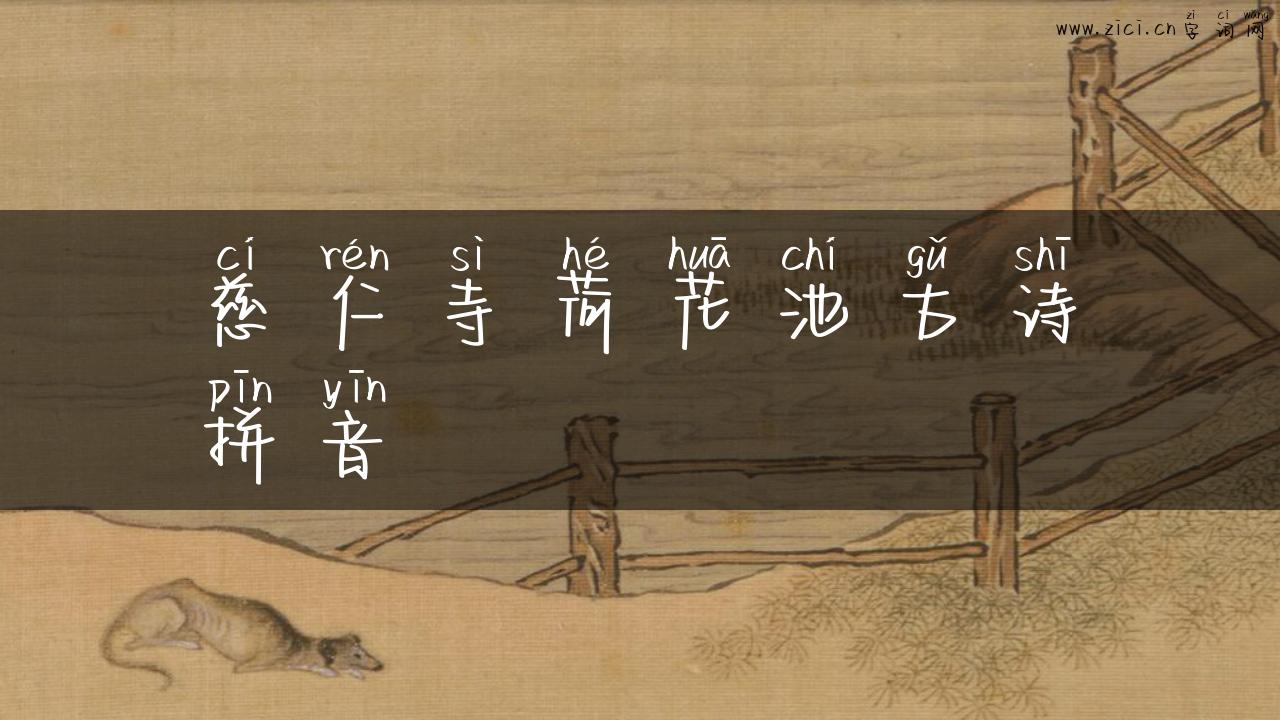 zì cí wǎng
www.zici.cn 字词网
cí rén sì hé huā chí gǔ shī
慈仁寺荷花池古诗
pīn yīn
拼音